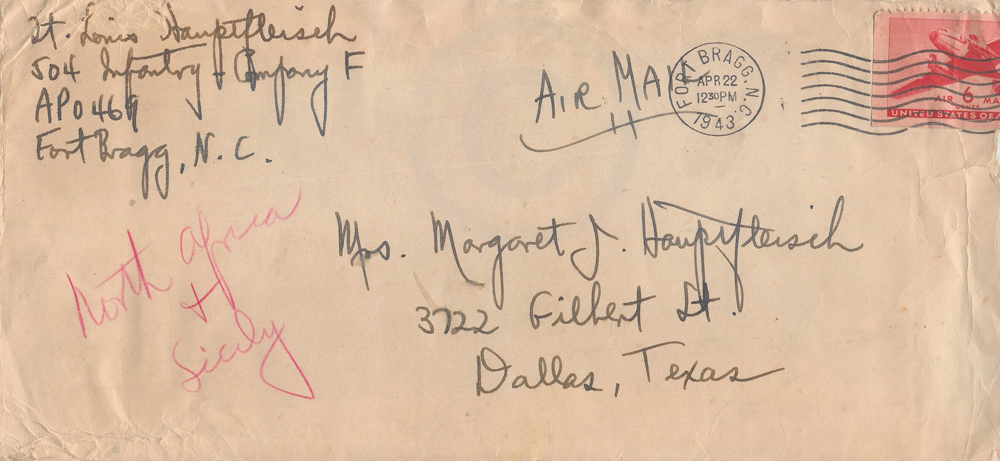 Lt. Louis Hauptfleisch
504 Infantry + Company F
APO 469
Fort Bragg, N.C.
AIR MAIL
FORT BRAGG, N.C.
APR 22
12 30 PM
1943
AIR 6 MA
CENTS
UNITED STATES OF A
Mrs. Margaret J. Hauptfleisch
3722 Gilbert St.
Dallas, Texas
North Africa
+
Sicily